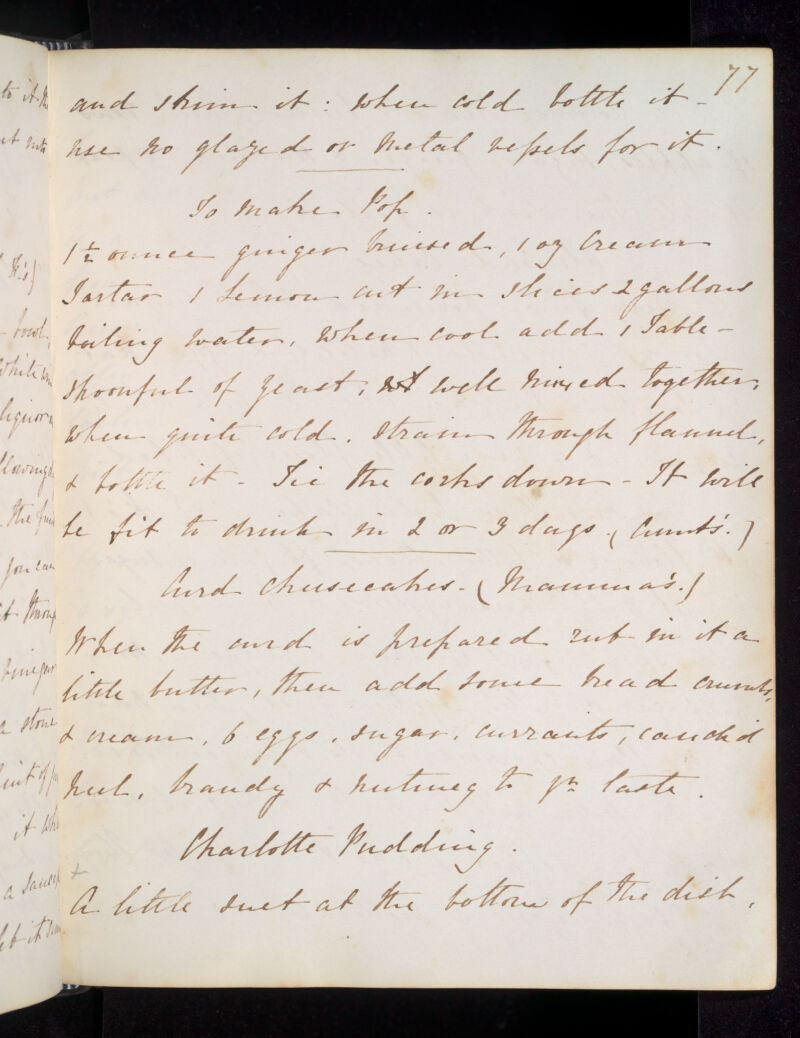 77
and skim it : when cold bottle it -
use no glazed or metal vessels for it .
To make Pop .
1½ ounce ginger bruised , 1 oz Cream
Tartar 1 Lemon cut in slices 2 gallons
boiling water , when cool add 1 Table -
spoonful of yeast , well mixed together ,
when quite cold , strain through flannel ,
& bottle it - Tie the corks down - It will
be fit to drink in 2 or 3 days . ( Aunt's . )
Curd Cheesecakes - ( Mamma's . )
When the curd is prepared rub in it a
little butter , then add some bread crumbs ,
& cream , 6 eggs , sugar , currants , candied
peel , brandy & nutmeg to yr taste .
Charlotte Pudding .
+
A little suet at the bottom of the dish ,
to it
it into
bowl ,
while
liquor
the
you can
it through
a stone
pint of
it
a
let it